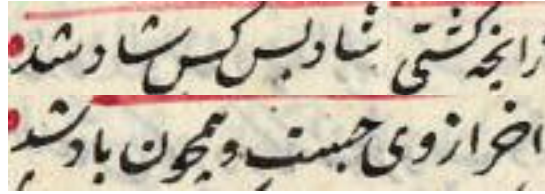 زانچه گشتی شاد بس کس شاد شد
اخر از وی جست و همچون باد شد